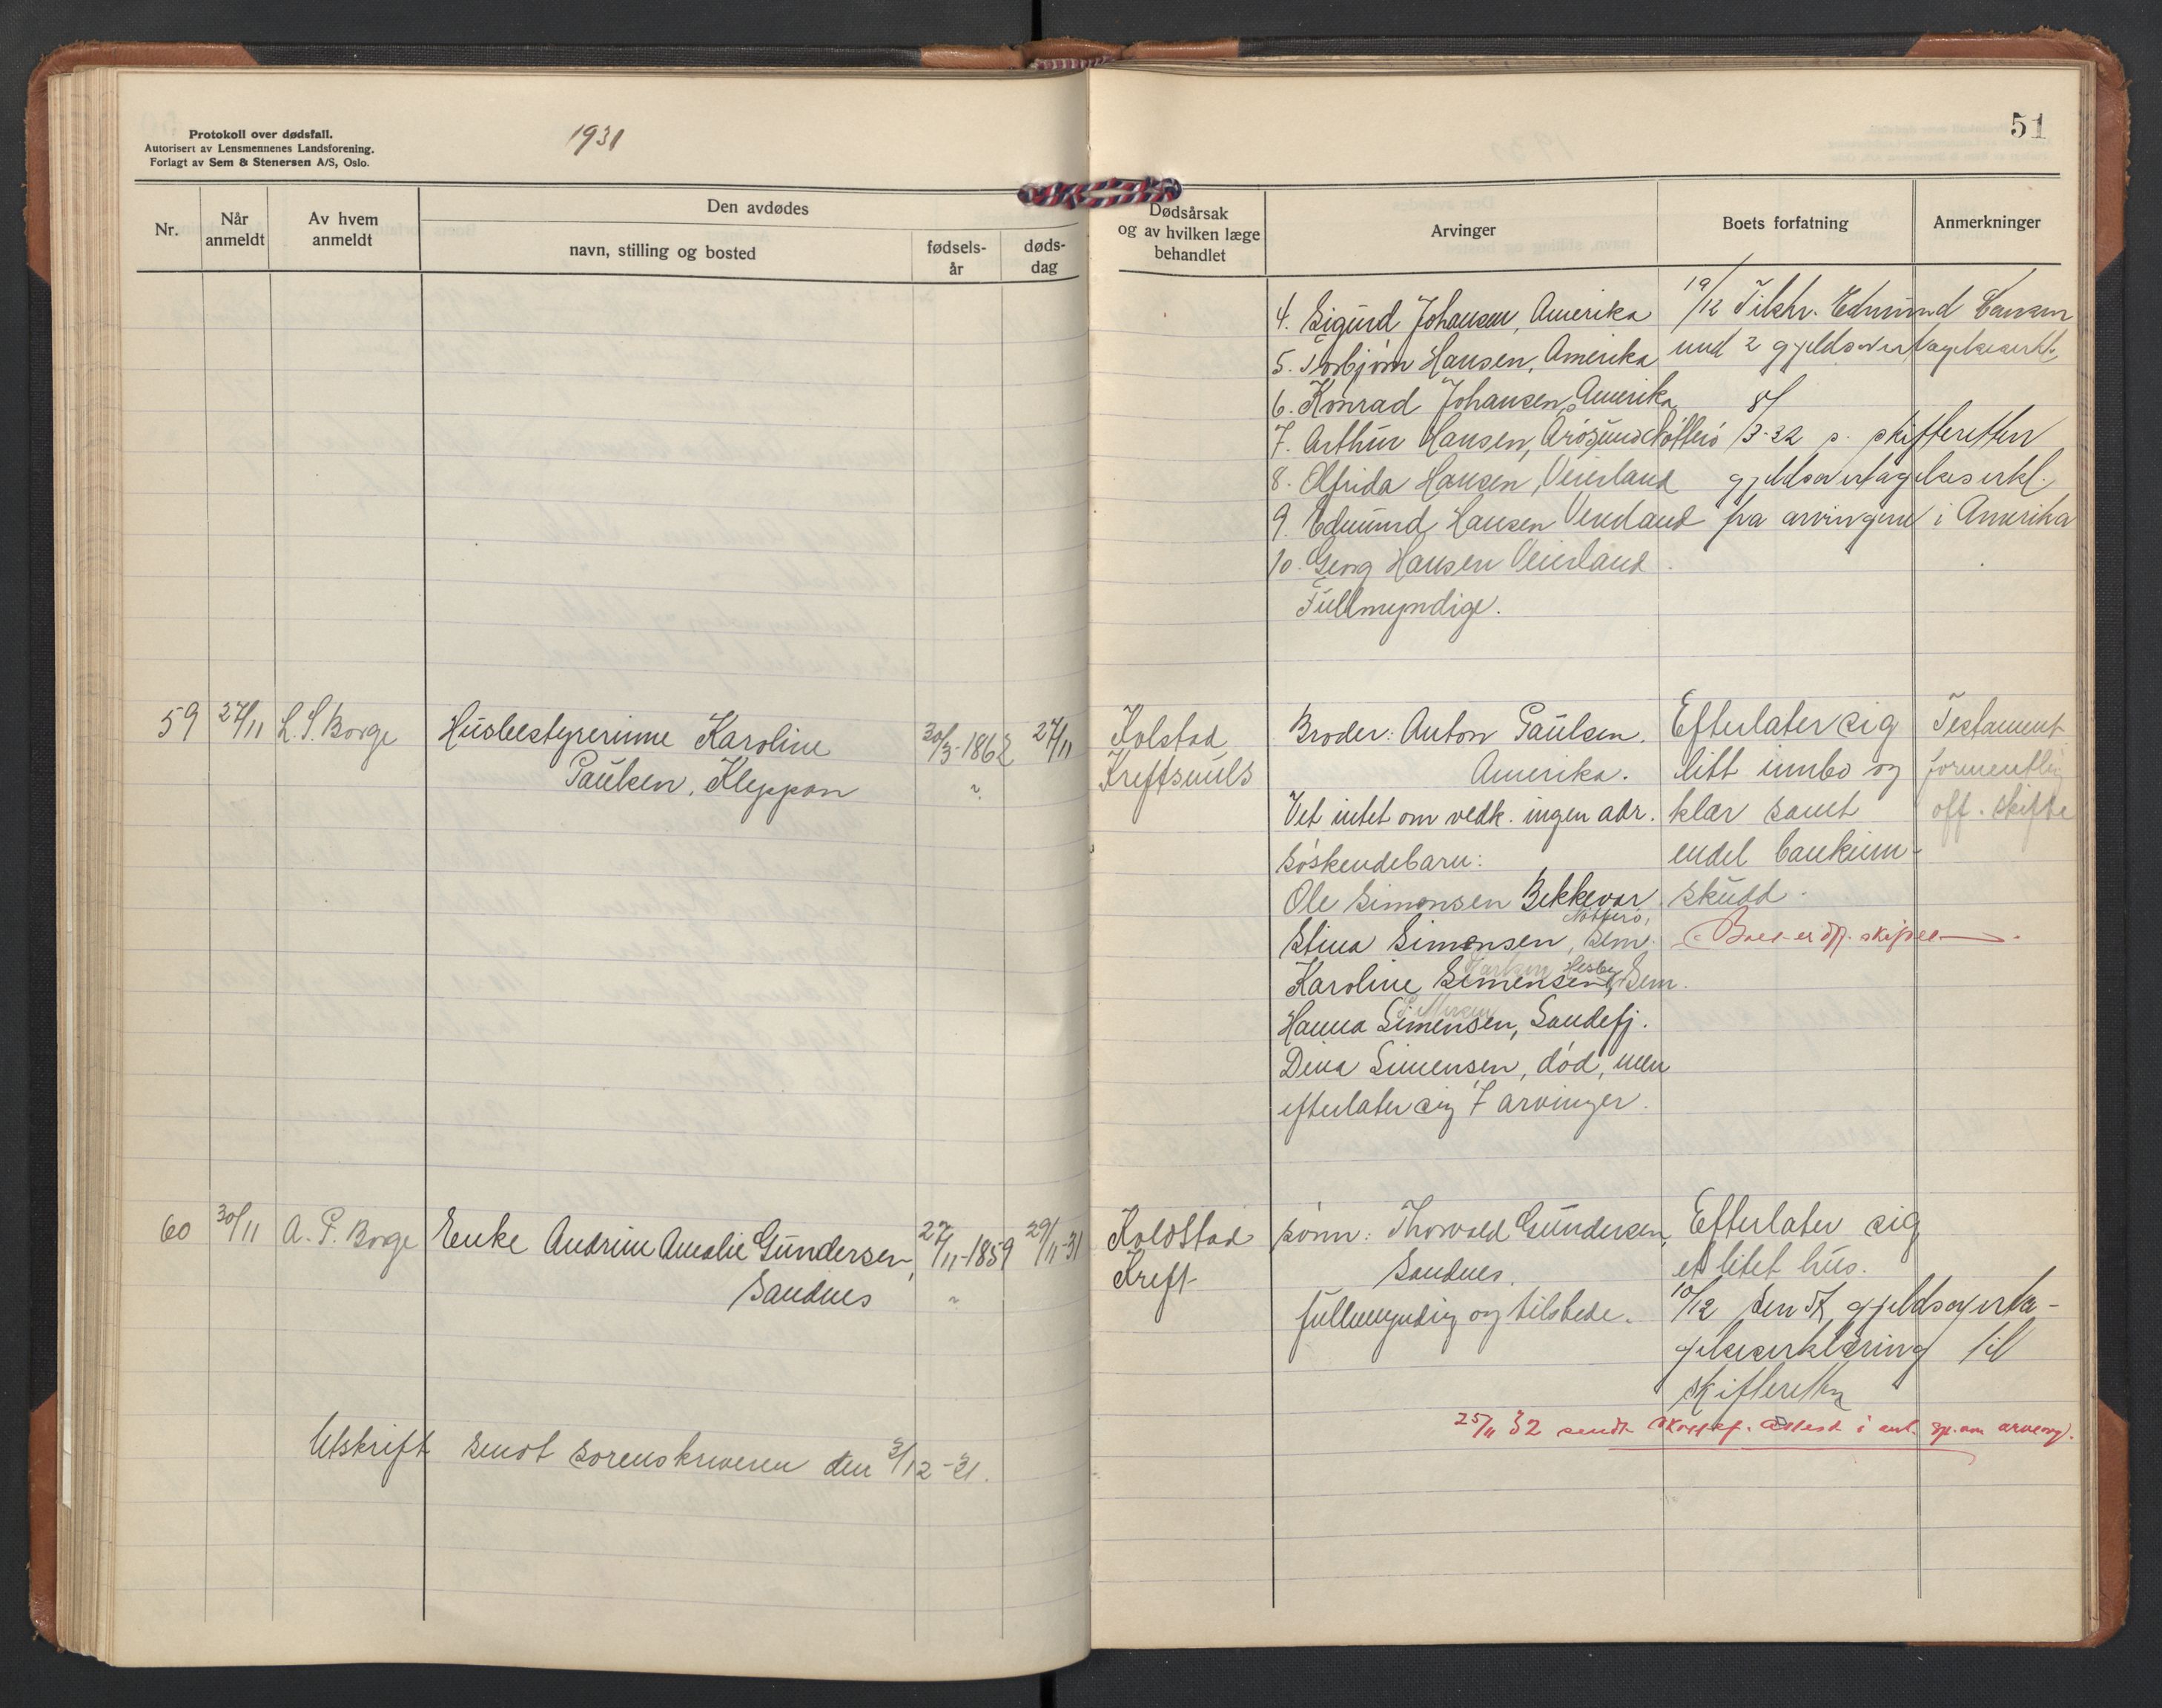 Protokoll over dødsfall.
Autorisert av Lensmennenes Landsforening.
Forlagt av Sem & Stenersen A/S, Oslo.
1931
51
Nr.
Når anmeldt
Av hvem anmeldt
Den avdødes
navn, stilling og bosted
fødsels-år
døds-dag
Dødsårsak og av hvilken læge behandlet
Arvinger
Boets forfatning
Anmerkninger
4. Sigurd Johansen, Amerika
5. Torbjørn Hansen, Amerika
6. Konrad Johansen, Amerika
7. Arthur Hansen, Årøsund Nøtterø
8. Alfrida Hansen, Veierland
9. Edmund Hansen Veierland
10. Georg Hansen Veierland
Fullmyndige.
19/12 Tilskr. Edmund Hansen
med 2 gjeldsovertagelseserkl.
8/3-32 s. skifteretten
gjeldsovertagelseserkl.
fra arvingene i Amerika
59
27/11
L. S. Borge
Husbestyrerinne Karoline
Paulsen, Kleppan
30/3-1862
"
27/11
Kolstad
Kreftsvuls
Broder: Anton Paulsen.
Amerika.
Vet intet om vedk. ingen adr.
Søskendebarn:
Ole Simonsen Bekkevar
Nøtterø,
Stina Simensen, Sem.
Hesby
Karoline Simensen, Sem.
Hanna Simensen, Sandefj.
Dina Simensen, død, men
efterlater sig 7 arvinger.
Efterlater sig
litt innbo og
klær samt
endel bankinn-
skudd.
Boet er off. skiftet
Testament
formentlig
off. skifte
60
30/11
A. P. Borge
Enke Andrine Amalie Gundersen,
Sandnes
27/11-1859
"
29/11-31
Koldstad
Kreft
sønn: Thorvald Gundersen,
Sandnes.
fullmyndig og tilstede.
Efterlater sig
et litet hus.
10/12 sendt gjeldsoverta-
gelseserklæring til
skifteretten
25/11 32 sendt attest i anl. om
Utskrift sendt sorenskriveren den 3/12-31.